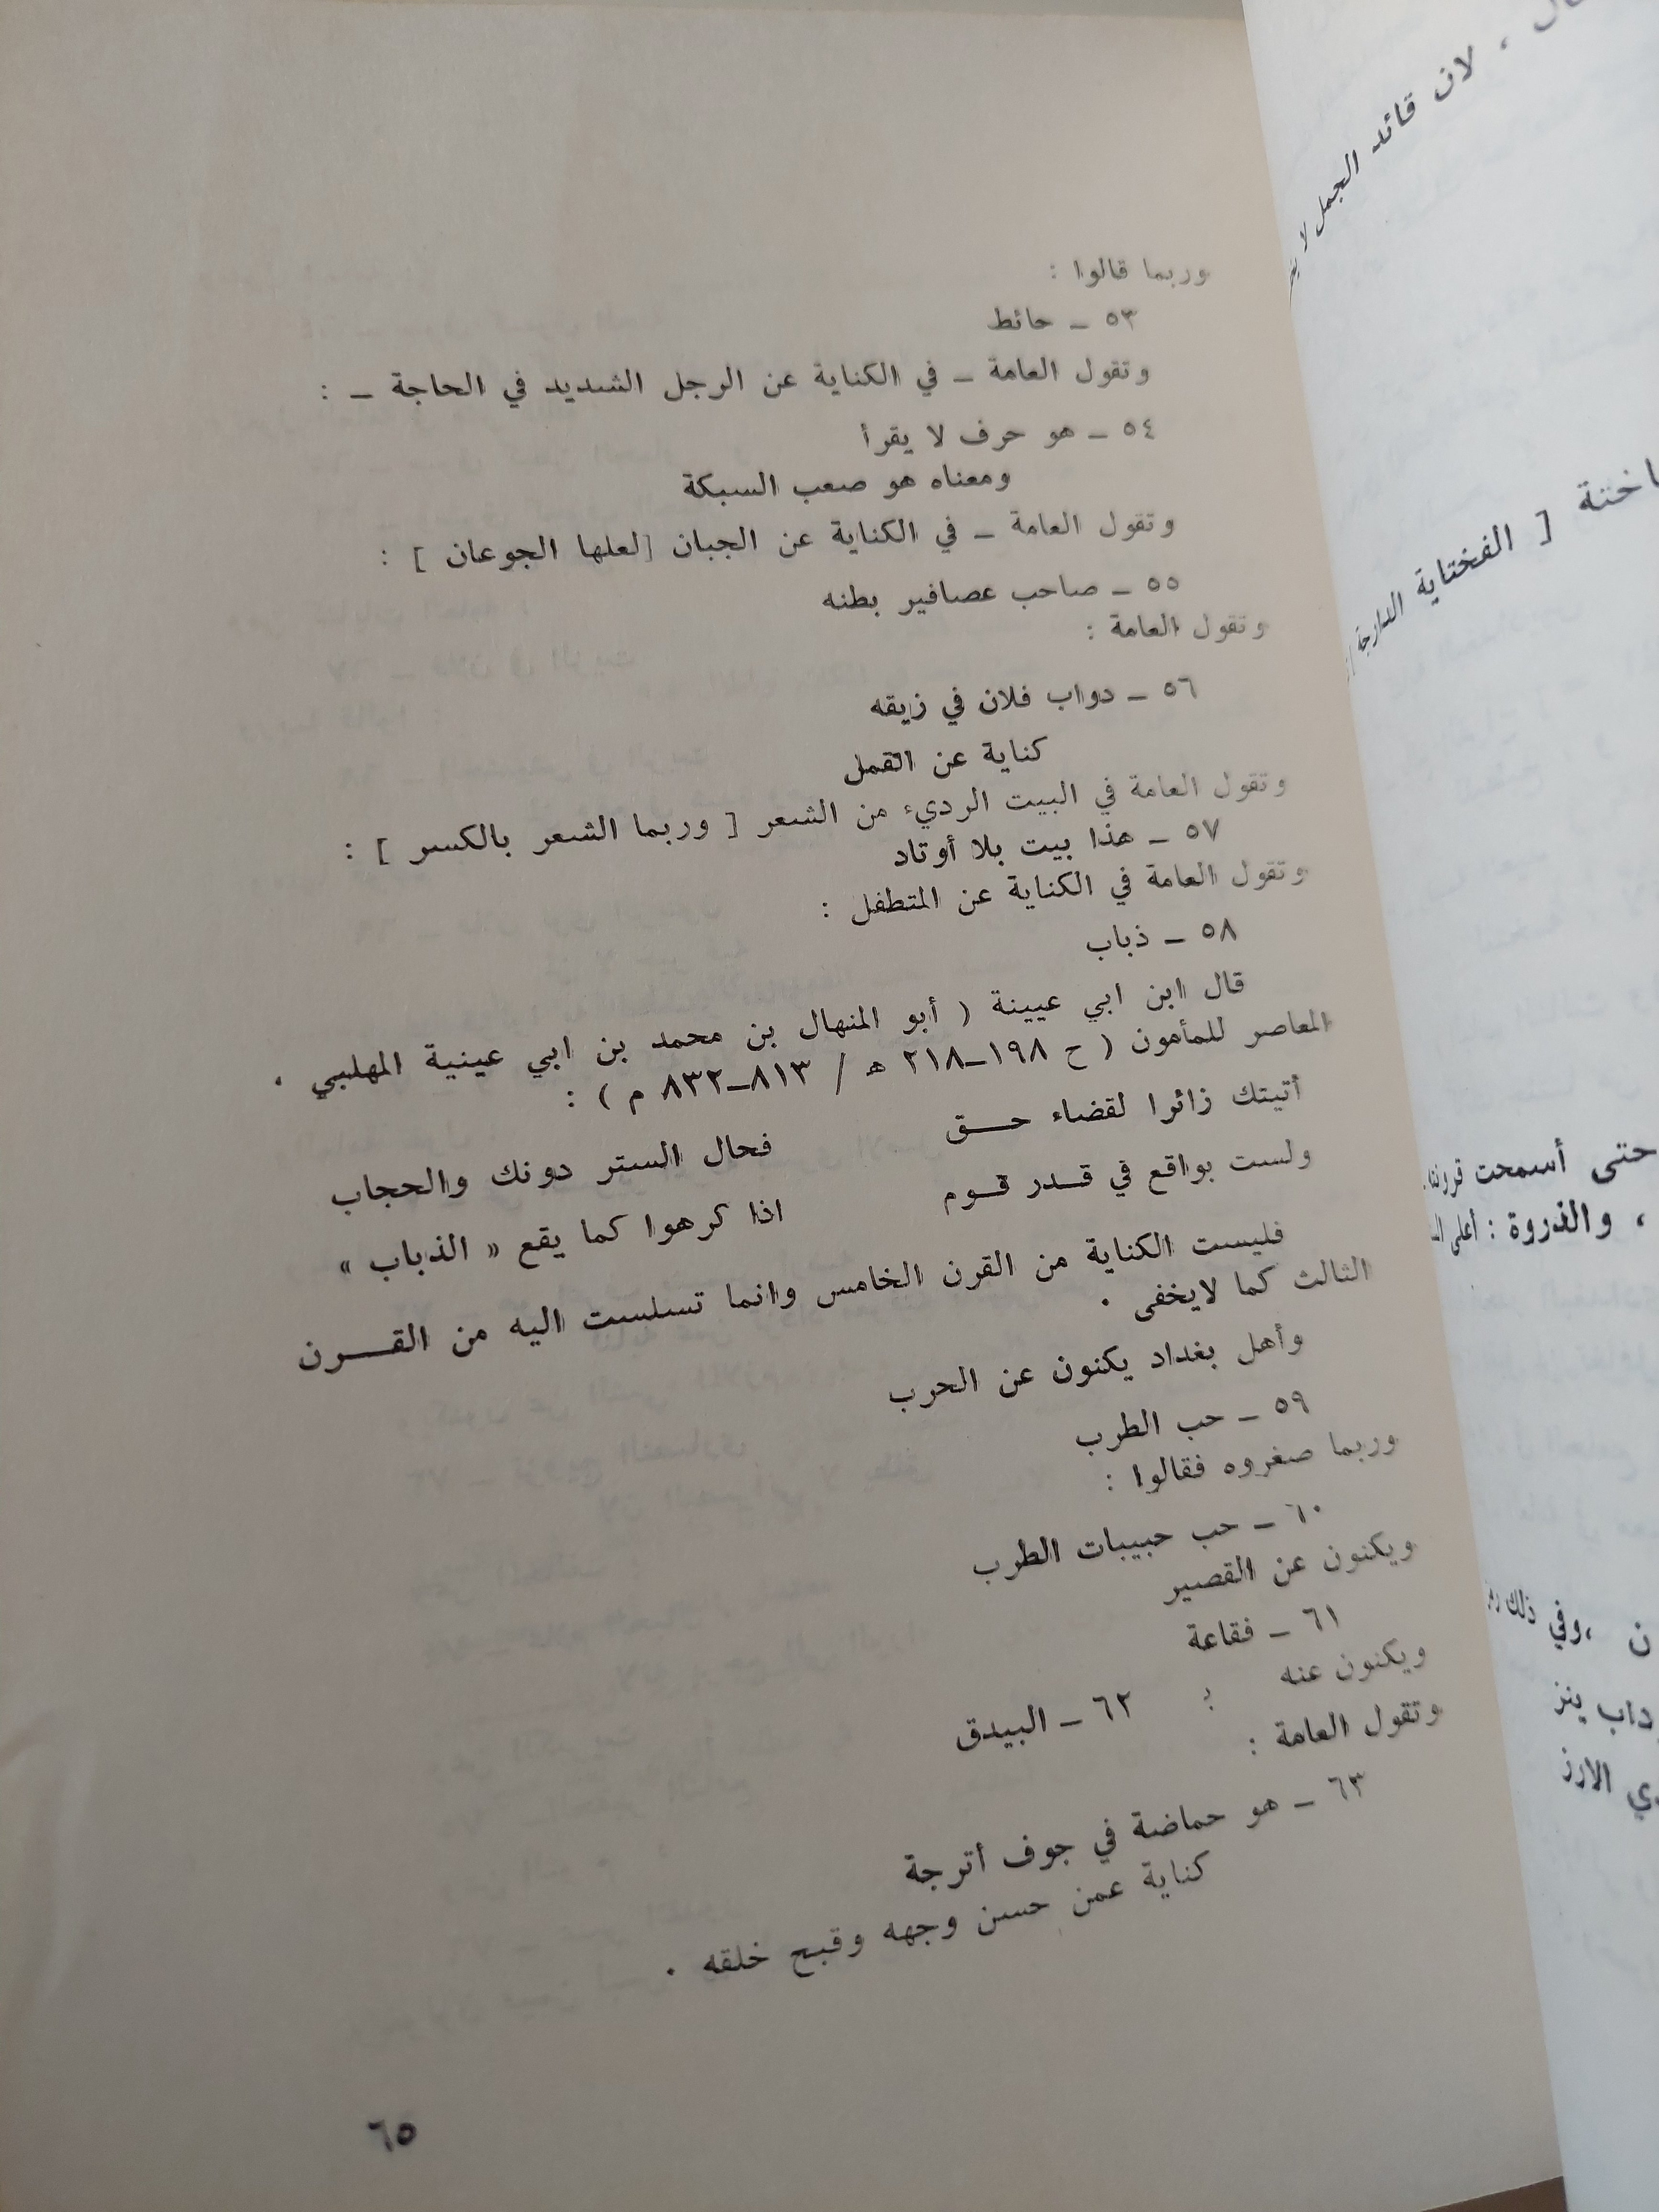 وربما قالوا :
٥٣ ـ حائط
وتقول العامة ـ في الكناية عن الرجل الشديد في الحاجة ـ :
٥٤ ـ هو حرف لا يقرأ
ومعناه هو صعب السبكة
وتقول العامة ـ في الكناية عن الجبان [لعلها الجوعان ] :
٥٥ ـ صاحب عصافير بطنه
وتقول العامة :
٥٦ ـ دواب فلان في زيقه
كناية عن القمل
وتقول العامة في البيت الرديء من الشعر [ وربما الشعر بالكسر ] :
٥٧ ـ هذا بيت بلا أوتاد
وتقول العامة في الكناية عن المتطفل :
٥٨ ـ ذباب
قال ابن ابي عيينة ( أبو المنهال بن محمد بن ابي عينية المهلبي .
المعاصر للمأمون ( ح ١٩٨ـ٢١٨ هـ / ٨١٣ـ٨٣٢ م ) :
أتيتك زائرا لقضاء حـــق فحال الستر دونك والحجاب
ولست بواقع في قـدر قـوم اذا كرهوا كما يقع « الذباب »
فليست الكناية من القرن الخامس وانما تسلست اليه من القــــرن
الثالث كما لايخفى .
وأهل بغداد يكنون عن الحرب
٥٩ ـ حب الطرب
وربما صغروه فقالوا :
٦٠ ـ حب حبيبات الطرب
ويكنون عن القصير
٦١ ـ فقاعة
ويكنون عنه : ٦٢ ـ البيدق
وتقول العامة :
٦٣ ـ هو حماضة في جوف أترجة
كناية عمن حسن وجهه وقبح خلقه .
٦٥
، لان قائد الجمل لا
[ الفختاية الدارجة
حتى أسمحت قرونه
، والذروة : أعلى
ن ،وفي ذلك
الارز